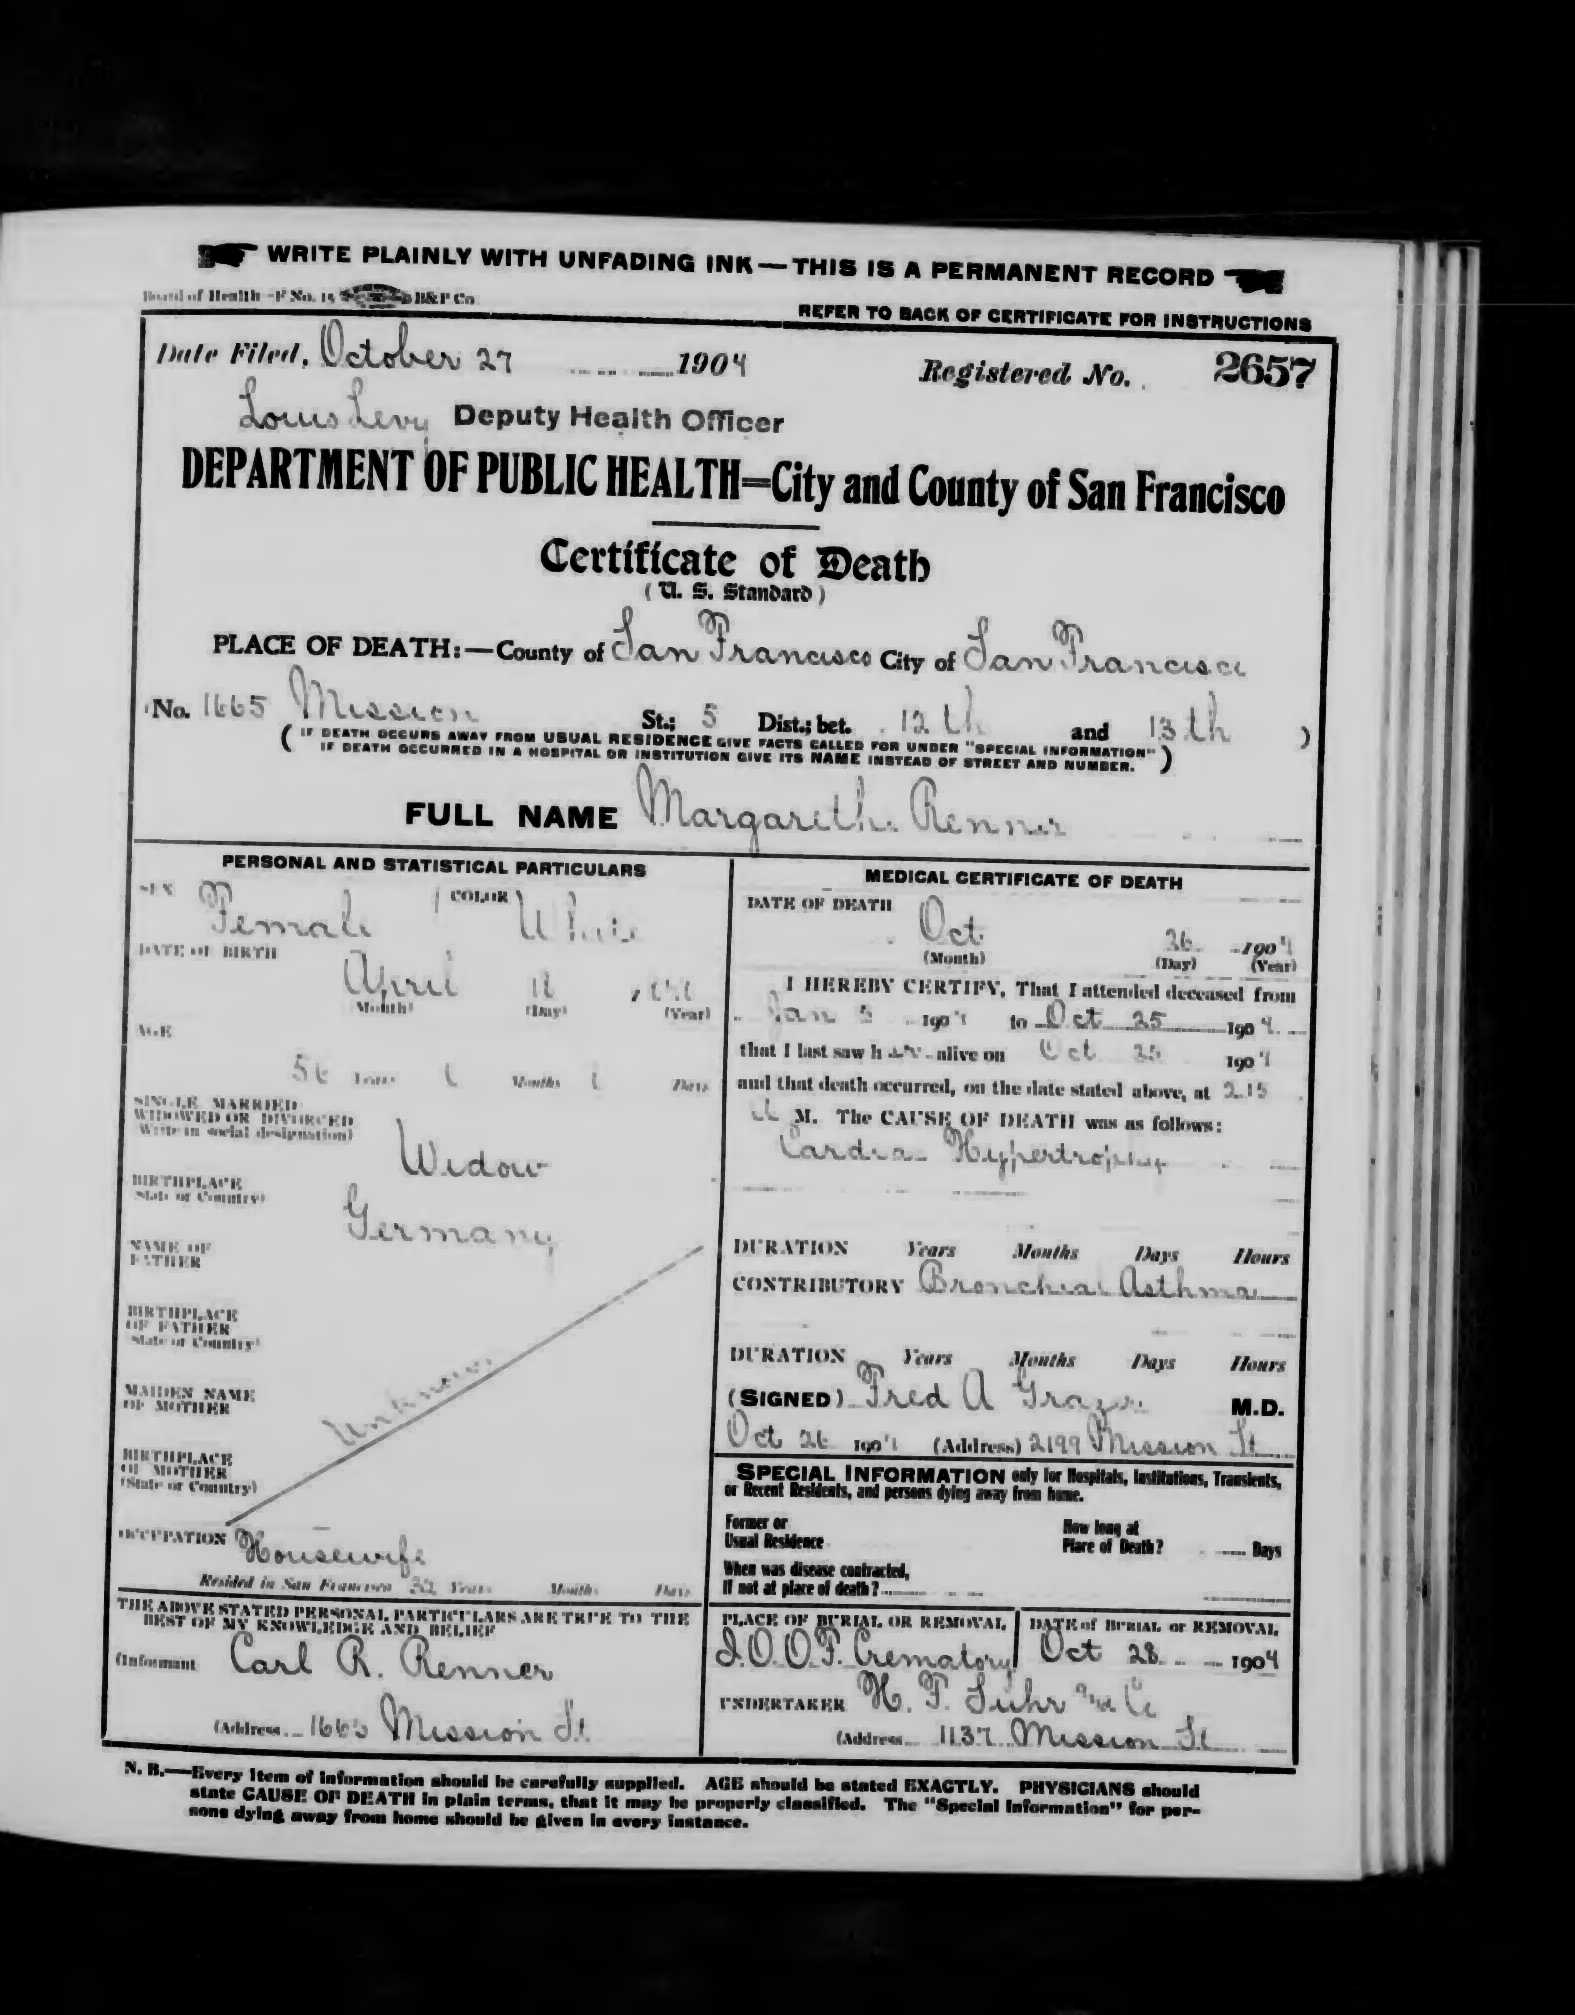 WRITE PLAINLY WITH UNFADING INK—THIS IS A PERMANENT RECORD
Board of Health—F No. 15 B&P Co
REFER TO BACK OF CERTIFICATE FOR INSTRUCTIONS
Date Filed, October 27 1904 Registered No. 2657
Louis Levy Deputy Health Officer
DEPARTMENT OF PUBLIC HEALTH=City and County of San Francisco
Certificate of Death
(U. S. Standard)
PLACE OF DEATH:—County of San Francisco City of San Francisco
No. 1665 Mission St.; 5 Dist.; bet. 12th and 13th )
( IF DEATH OCCURS AWAY FROM USUAL RESIDENCE GIVE FACTS CALLED FOR UNDER "SPECIAL INFORMATION"
IF DEATH OCCURRED IN A HOSPITAL OR INSTITUTION GIVE ITS NAME INSTEAD OF STREET AND NUMBER. )
FULL NAME Margarethe Renner
PERSONAL AND STATISTICAL PARTICULARS
SEX Female COLOR White
DATE OF BIRTH
April
(Month) (Day) (Year)
AGE
56 Years Months Days
SINGLE, MARRIED
WIDOWED OR DIVORCED
(Write in social designation)
Widow
BIRTHPLACE
(State or Country)
Germany
NAME OF
FATHER
BIRTHPLACE
OF FATHER
(State or Country)
Unknown
MAIDEN NAME
OF MOTHER
BIRTHPLACE
OF MOTHER
(State or Country)
OCCUPATION Housewife
Resided in San Francisco 32 Years Months Days
THE ABOVE STATED PERSONAL PARTICULARS ARE TRUE TO THE
BEST OF MY KNOWLEDGE AND BELIEF
(Informant Carl R. Renner
(Address 1665 Mission St
MEDICAL CERTIFICATE OF DEATH
DATE OF DEATH
Oct 26 1904
(Month) (Day) (Year)
I HEREBY CERTIFY, That I attended deceased from
Jan 1904 to Oct 25 1904
that I last saw her alive on Oct 25 1904
and that death occurred, on the date stated above, at 2.15
A M. The CAUSE OF DEATH was as follows:
Cardiac Hypertrophy
DURATION Years Months Days Hours
CONTRIBUTORY Bronchial Asthma
DURATION Years Months Days Hours
(SIGNED) Fred A Grazer M.D.
Oct 26 1904 (Address) 2199 Mission St
SPECIAL INFORMATION only for Hospitals, Institutions, Transients,
or Recent Residents, and persons dying away from home.
Former or
Usual Residence
How long at
Place of Death? Days
When was disease contracted,
If not at place of death?
PLACE OF BURIAL OR REMOVAL
I.O.O.F. Crematory
DATE of BURIAL or REMOVAL
Oct 28 1904
UNDERTAKER H. F. Suhr and Co
(Address 1137 Mission St
N. B.—Every item of information should be carefully supplied. AGE should be stated EXACTLY. PHYSICIANS should
state CAUSE OF DEATH in plain terms, that it may be properly classified. The "Special Information" for per-
sons dying away from home should be given in every instance.